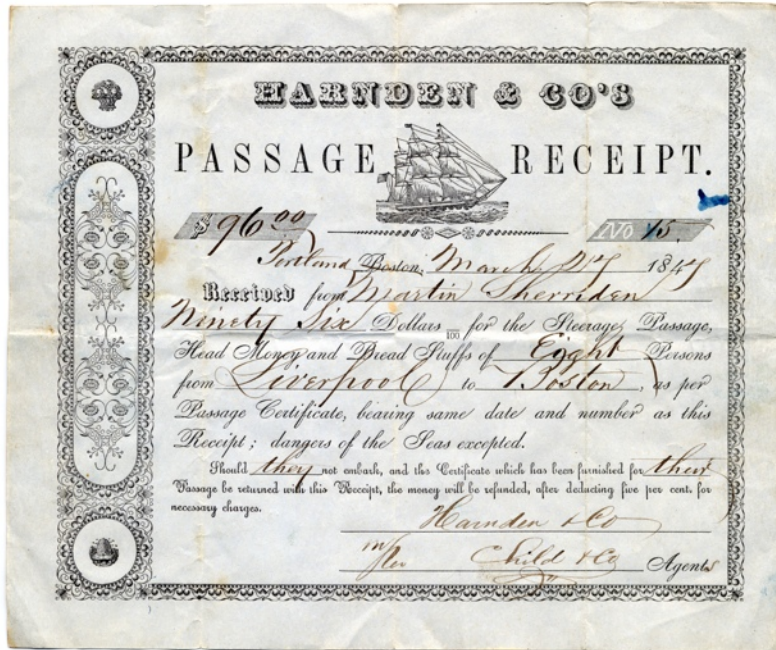 HARNDEN & CO'S
PASSAGE RECEIPT.
$ 96 00 No 15.
Portland, Boston, March 27 1847
Received from Martin Sherriden
Ninety Six Dollars 100 for the Steerage Passage,
Head Money and Bread Stuffs of Eight Persons
from Liverpool to Boston, as per
Passage Certificate, bearing same date and number as this
Receipt; dangers of the Seas excepted.
Should they not embark, and the Certificate which has been furnished for their
Passage be returned with this Receipt, the money will be refunded, after deducting five per cent. for
necessary charges.
Harnden & Co
Child & Co Agents